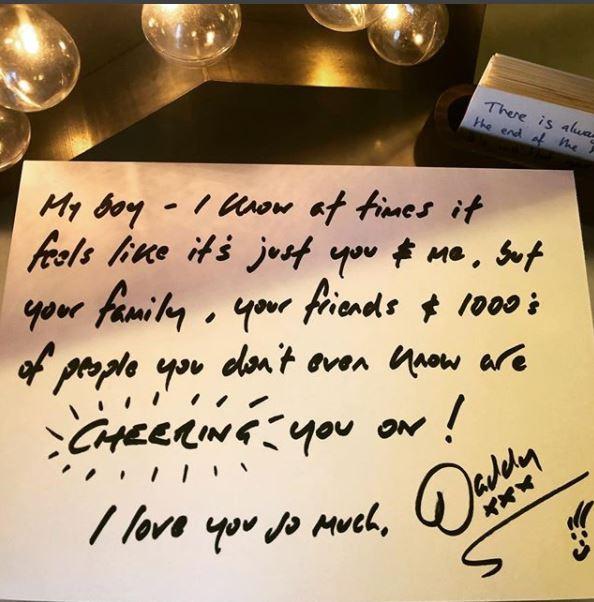 There is alway
the end of the
My boy - I know at times it
feels like it's just you & me, but
your family, your friends & 1000's
of people you don't even know are
CHEERING you on!
I love you so much.
Daddy
xxx